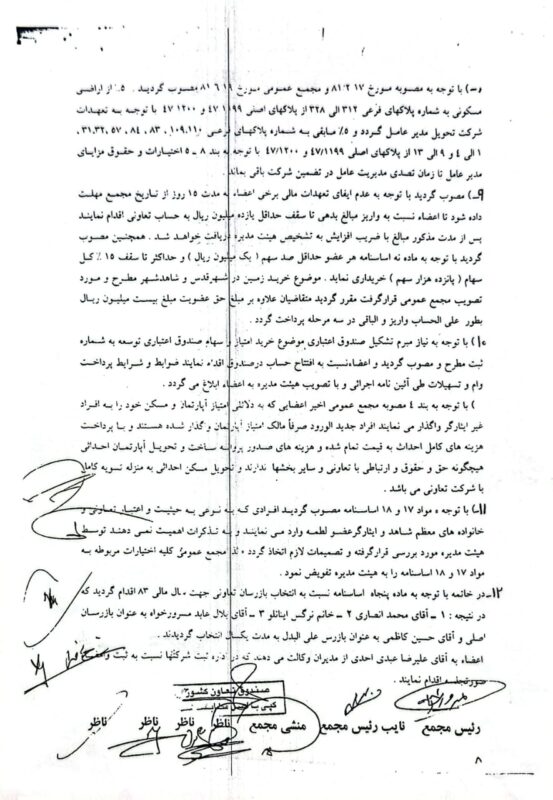 با توجه به مصوبه مورخ ۸۱/۲/۱۷ و مجمع عمومی مورخ ۸۱/۶/۱۹ مصوب گردید . ۵٪ از اراضی
مسکونی به شماره پلاکهای فرعی ۳۱۲ الی ۳۲۸ از پلاکهای اصلی ۴۷/۱۱۹۹ و ۴۷/۱۲۰۰ با توجه به تعهدات
شرکت تحویل مدیر عامل گردد و ۵٪ مابقی به شماره پلاکهای فرعی ۱۰۹،۱۱۰ ، ۸۳ ، ۸۴ ، ۵۷ ،۳۱،۳۲
۱ الی ۴ و ۹ الی ۱۳ از پلاکهای اصلی ۴۷/۱۱۹۹ و ۴۷/۱۲۰۰ با توجه به بند ۸ - ۵ اختیارات و حقوق مزایای
مدیر عامل تا زمان تصدی مدیریت عامل در تضمین شرکت باقی بماند .
۹-) مصوب گردید با توجه به عدم ایفای تعهدات مالی برخی اعضاء به مدت ۱۵ روز از تاریخ مجمع مهلت
داده شود تا اعضاء نسبت به واریز مبالغ بدهی تا سقف حداقل یازده میلیون ریال به حساب تعاونی اقدام نمایند
پس از مدت مذکور مبالغ با ضریب افزایش به تشخیص هیئت مدیره دریافت خواهد شد . همچنین مصوب
گردید با توجه به ماده نه اساسنامه هر عضو حداقل صد سهم ( یک میلیون ریال ) و حداکثر تا سقف ۱۵٪ کل
سهام ( پانزده هزار سهم ) خریداری نماید . موضوع خرید زمین در شهرقدس و شاهدشهر مطرح و مورد
تصویب مجمع عمومی قرارگرفت مقرر گردید متقاضیان علاوه بر مبلغ حق عضویت مبلغ بیست میلیون ریال
بطور علی الحساب واریز و الباقی در سه مرحله پرداخت گردد .
۱۰) با توجه به نیاز مبرم تشکیل صندوق اعتباری موضوع خرید امتیاز و سهام صندوق اعتباری توسعه به شماره
ثبت مطرح و مصوب گردید و اعضاءنسبت به افتتاح حساب درصندوق اقدام نمایند ضوابط و شرایط پرداخت
وام و تسهیلات طی آئین نامه اجرائی و با تصویب هیئت مدیره به اعضاء ابلاغ می گردد .
) با توجه به بند ۴ مصوبه مجمع عمومی اخیر اعضایی که به دلائلی امتیاز آپارتمان و مسکن خود را به افراد
غیر ایثارگر واگذار می نمایند افراد جدید الورود صرفاً مالک امتیاز آپارتمان و گذار شده هستند و با پرداخت
هزینه های کامل احداث به قیمت تمام شده و هزینه های صدور پروانه ساخت و تحویل آپارتمان احداثی
هیچگونه حق و حقوق و ارتباطی با تعاونی و سایر بخشها ندارند و تحویل مسکن احداثی به منزله تسویه کامل
با شرکت تعاونی می باشد .
۱۱-) با توجه به مواد ۱۷ و ۱۸ اساسنامه مصوب گردید افرادی که به نوعی به حیثیت و اعتبار تعاونی و
خانواده های معظم شاهد و ایثارگرعضو لطمه وارد می نمایند و به تذکرات اهمیت نمی دهند توسط
هیئت مدیره مورد بررسی قرارگرفته و تصمیمات لازم اتخاذ گردد ، لذا مجمع عمومی کلیه اختیارات مربوطه به
مواد ۱۷ و ۱۸ اساسنامه را به هیئت مدیره تفویض نمود .
۱۲- در خاتمه با توجه به ماده پنجاه اساسنامه نسبت به انتخاب بازرسان تعاونی جهت سال مالی ۸۳ اقدام گردید که
در نتیجه : ۱ - آقای محمد انصاری ۲ - خانم نرگس اینانلو ۳ - آقای بلال عابد مسرورخواه به عنوان بازرسان
اصلی و آقای حسین کاظمی به عنوان بازرس علی البدل به مدت یکسال انتخاب گردیدند .
اعضاء به آقای علیرضا عبدی احدی از مدیران وکالت می دهند که در اداره ثبت شرکتها نسبت به ثبت
صورتجلسه اقدام نمایند .
صندوق تعاون کشور
رئیس مجمع نایب رئیس مجمع منشی مجمع ناظر ناظر ناظر ناظر
۸